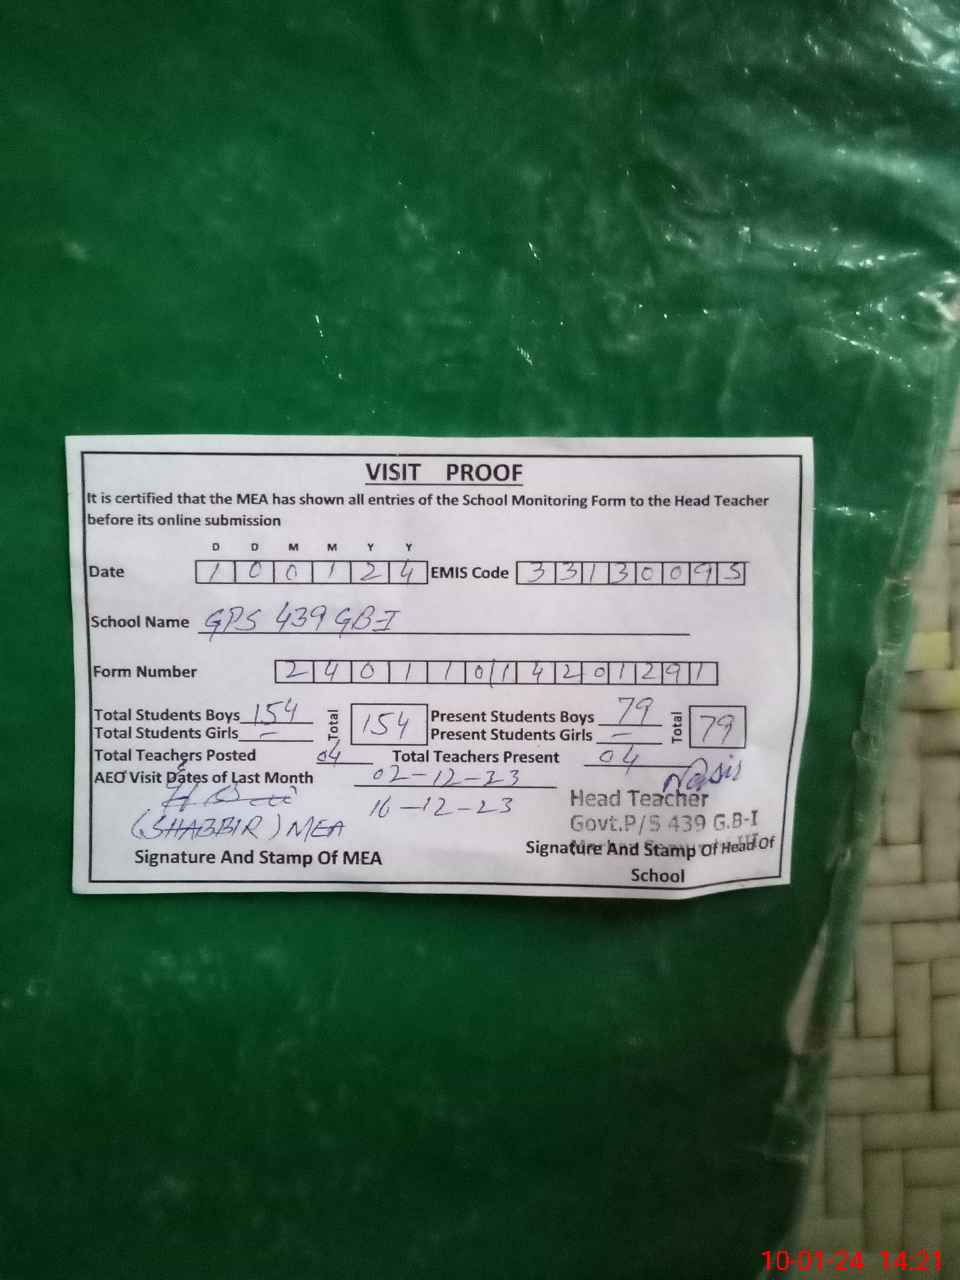 VISIT PROOF
It is certified that the MEA has shown all entries of the School Monitoring Form to the Head Teacher
before its online submission
D D M M Y Y
Date 1 0 0 1 2 4 EMIS Code 3 3 1 3 0 0 9 5
School Name GPS 439 GB-I
Form Number 2 4 0 1 1 0 1 4 2 0 1 2 9 1
Total Students Boys 154 Total 154 Present Students Boys 79 Total 79
Total Students Girls - Present Students Girls -
Total Teachers Posted 04 Total Teachers Present 04
AEO Visit Dates of Last Month 02-12-23
16-12-23
(SHABBIR) MEA
Signature And Stamp Of MEA
Head Teacher
Govt.P/S 439 G.B-I
Signature And Stamp Of Head Of
School
10-01-24 14:21